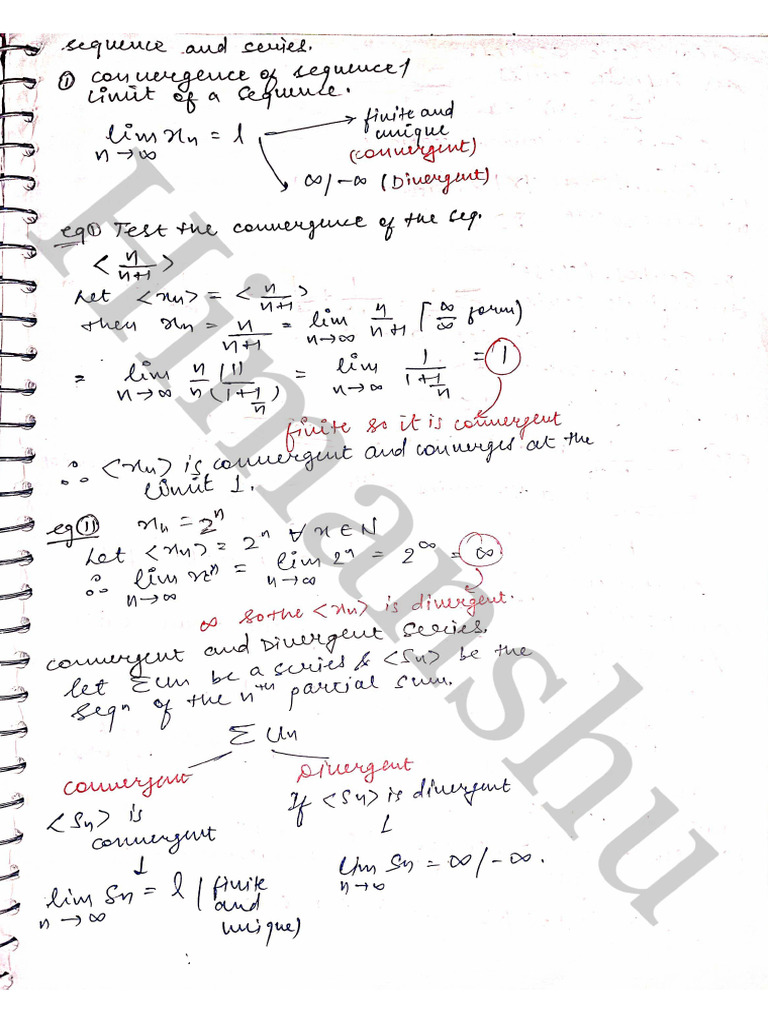 sequence and series.
① convergence of sequence/
limit of a sequence.
lim xn = l → finite and unique (convergent)
n→∞
∞/-∞ (Divergent)
eg① Test the convergence of the seq.
< n/n+1 >
Let <xn> = < n/n+1 >
then xn = n/n+1 = lim n→∞ n/n+1 (∞/∞ form)
= lim n→∞ n/n (1)/(1+1/n) = lim n→∞ 1/1+1/n = 1
finite so it is convergent
∴ <xn> is convergent and converges at the
limit 1.
eg ⑪ xn = 2ⁿ
Let <xn> = 2ⁿ ∀ x ∈ N
∴ lim n→∞ xⁿ = lim n→∞ 2ⁿ = 2^∞ = ∞
∞ so the <xn> is divergent.
convergent and Divergent series.
let Σun be a series & <Sn> be the
seqn of the nth partial sum.
Σ Un
convergent Divergent
<Sn> is convergent If <Sn> is divergent
↓ ↓
lim n→∞ Sn = l (finite and unique) lim n→∞ Sn = ∞/-∞.
Himanshu